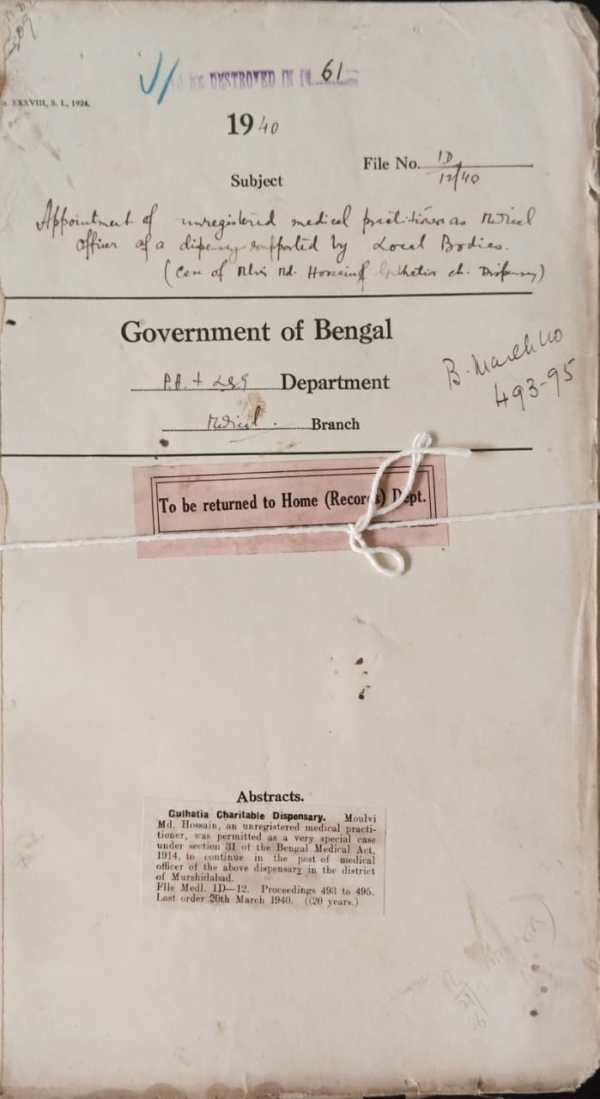 TO BE DESTROYED IN 61
XXXVIII, S. I., 1924.
1940
File No. 1D/12/40
Subject
Appointment of unregistered medical practitioner as Medical
officer of a dispensary supported by Local Bodies.
(Case of Md. Hossain of ch. Dispensary)
Government of Bengal
Department
Medical Branch
B. March/40
493-95
To be returned to Home (Records) Dept.
Abstracts.
Gulhatia Charitable Dispensary. Moulvi
Md. Hossain, an unregistered medical practi-
tioner, was permitted as a very special case
under section 31 of the Bengal Medical Act,
1914, to continue in the post of medical
officer of the above dispensary in the district
of Murshidabad.
File Medl. 1D—12. Proceedings 493 to 495.
Last order 20th March 1940. ((20 years.)